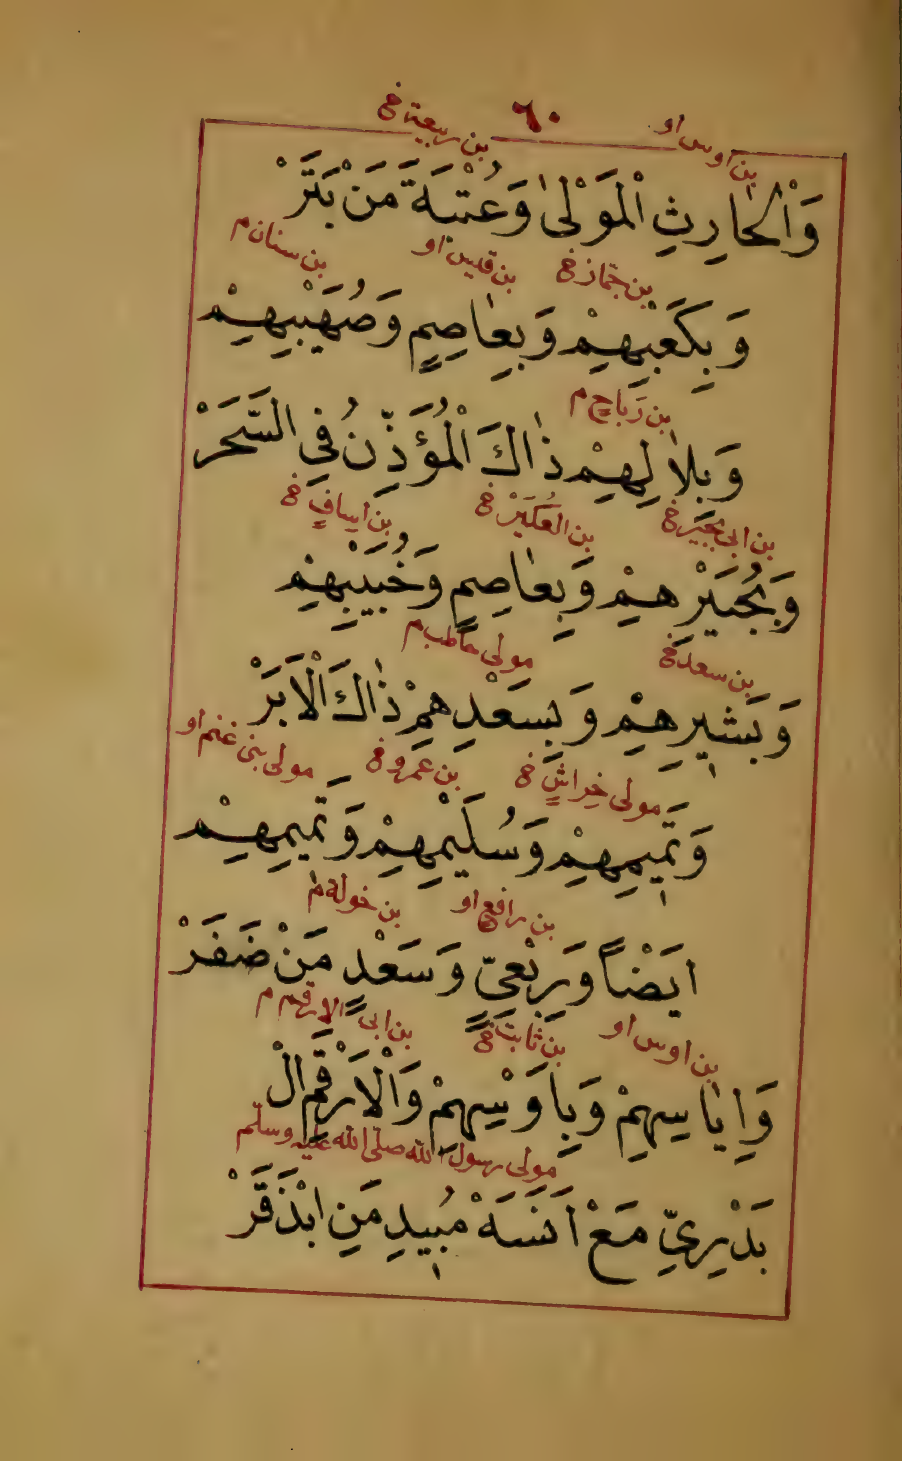 ٦٠
بن اوس او بن ربيعة خ
وَالْحَارِثِ الْمَوْلٰى وَعُتْبَةَ مَنْ بَتَرْ
بن جمّاز خ بن قيس او بن سنان م
وَبِكَعْبِهِمْ وَبِعَاصِمٍ وَصُهَيْبِهِمْ
بن رَبَاحٍ م
وَبِلاٰلِهِمْ ذٰاكَ الْمُؤَذِّنُ فِي السَّحَرْ
بن ابى بجير خ بن الْعُكَيْرْ خ بن اِسافٍ خ
وَبُجَيْرِهِمْ وَبِعَاصِمٍ وَخُبَيْبِهِمْ
بن سعد خ مولى حاطب م
وَبَشِيرِهِمْ وَبِسَعْدِهِمْ ذٰاكَ الْاَبَرْ
مولى خِراشٍ خ بن عمرو خ مولى بنى غنم او
وَتَمِيمِهِمْ وَسُلَيْمِهِمْ وَتَمِيمِهِمْ
بن رافع او بن خولة م
اَيْضًا وَرِبْعِيٍّ وَسَعْدٍ مَنْ ضَفَرْ
بن اوس او بن ثابت خ بن ابى الارقم م
وَاِيَاسِهِمْ وَبِاَوْسِهِمْ وَالْاَرْقَمِ الْ
مولى رسول الله صلّى الله عليه وسلّم
بَدْرِيِّ مَعْ اَنَسَهْ مُبِيدِ مَنِ ابْذَقَرْ